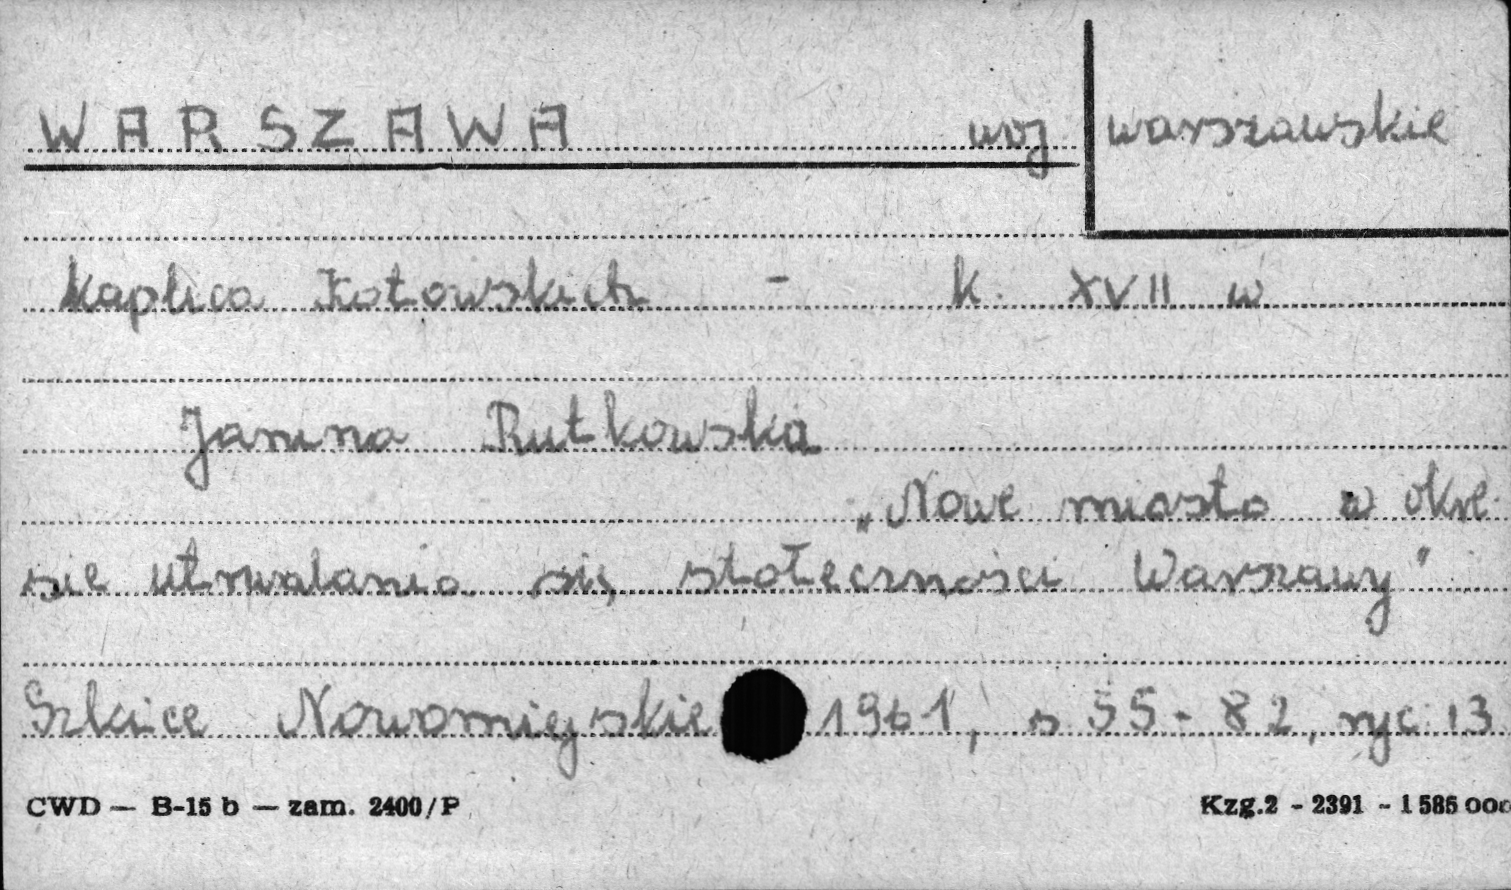 WARSZAWA woj warszawskie
Kaplica Kotowskich - k. XVII w
Janina Rutkowska
„Nowe miasto w okre-
sie utrwalania się stołeczności Warszawy"
Szkice Nowomiejskie 1961, s 55-82, ryc 13
CWD — B-15 b — zam. 2400/P Kzg.2 - 2391 - 1 585 000